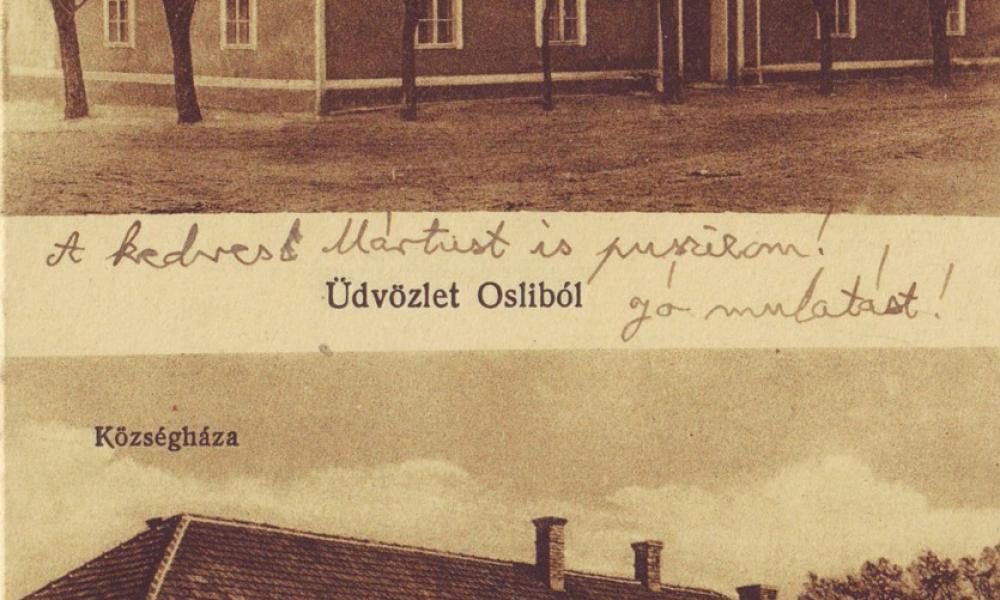 A kedves Mártust is puszilom!
Üdvözlet Osliból
Jó mulatást!
Községháza